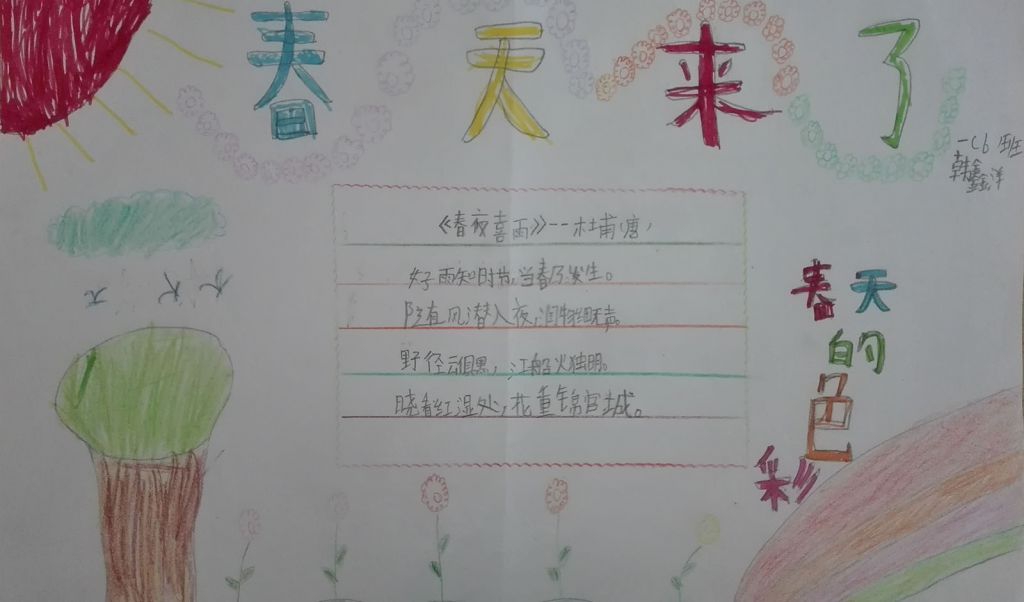 春天来了
一(6)班
韩鑫洋
《春夜喜雨》--杜甫(唐)
好雨知时节,当春乃发生。
随风潜入夜,润物细无声。
野径云俱黑,江船火独明。
晓看红湿处,花重锦官城。
春天
的
色
彩